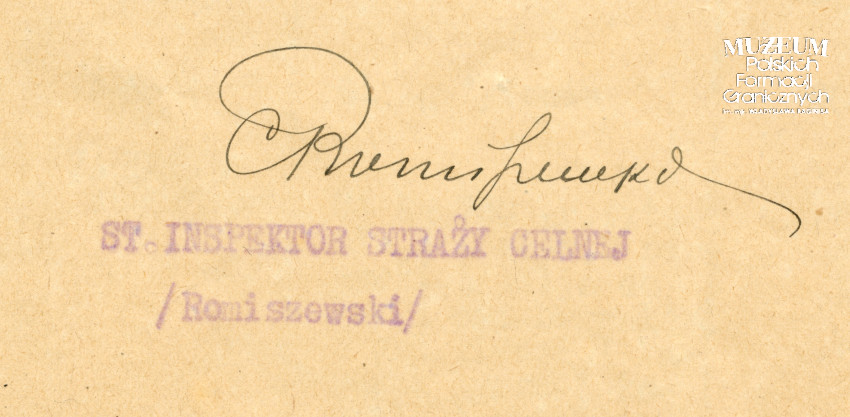 MUZEUM
Polskich
Formacji
Granicznych
Romiszewski
ST. INSPEKTOR STRAŻY CELNEJ
/Romiszewski/